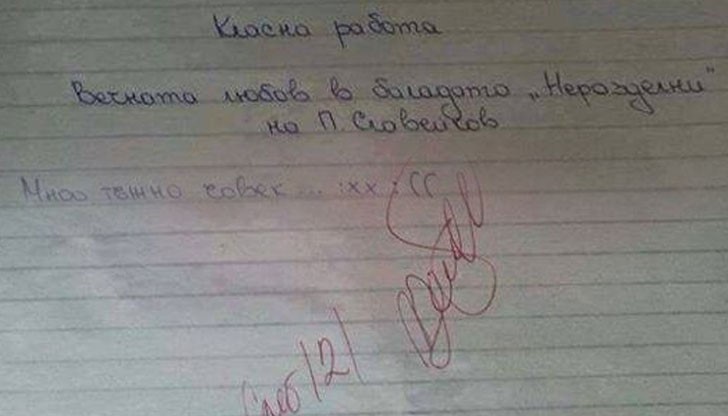 Класна работа
Вечната любов в баладата „Неразделни"
на П. Славейков
Мноо тежно човек ... :хх :((
Слаб /2/